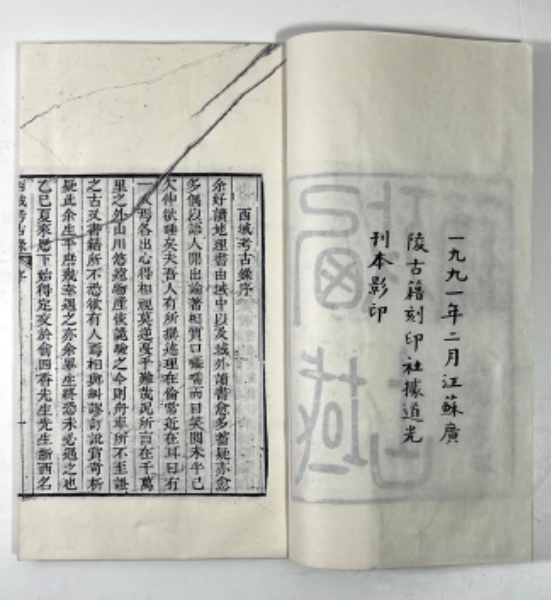 一九九一年二月江蘇廣
陵古籍刻印社據道光
刊本影印
西域考古錄序
余好讀地理書由域中以及域外讀書愈多蓄疑亦愈
多偶以語人開出論著相質口囁嚅而目笑閱未半已
欠伸欲睡矣夫吾人有所撰述理在倫常近在耳目有
一人焉各出心得相視莫逆戞乎難哉況所言在千萬
里之外山川悠邈物產恢詭驗之今則舟車所不至證
之古又書籍所不悉欲有人焉相與糾謬訂訛賞奇析
疑此余生平庶幾幸遇之亦余畢生終恐未必遇之也
乙巳夏來厯下始得定交於俞四香先生先生浙西名
西域考古錄 序